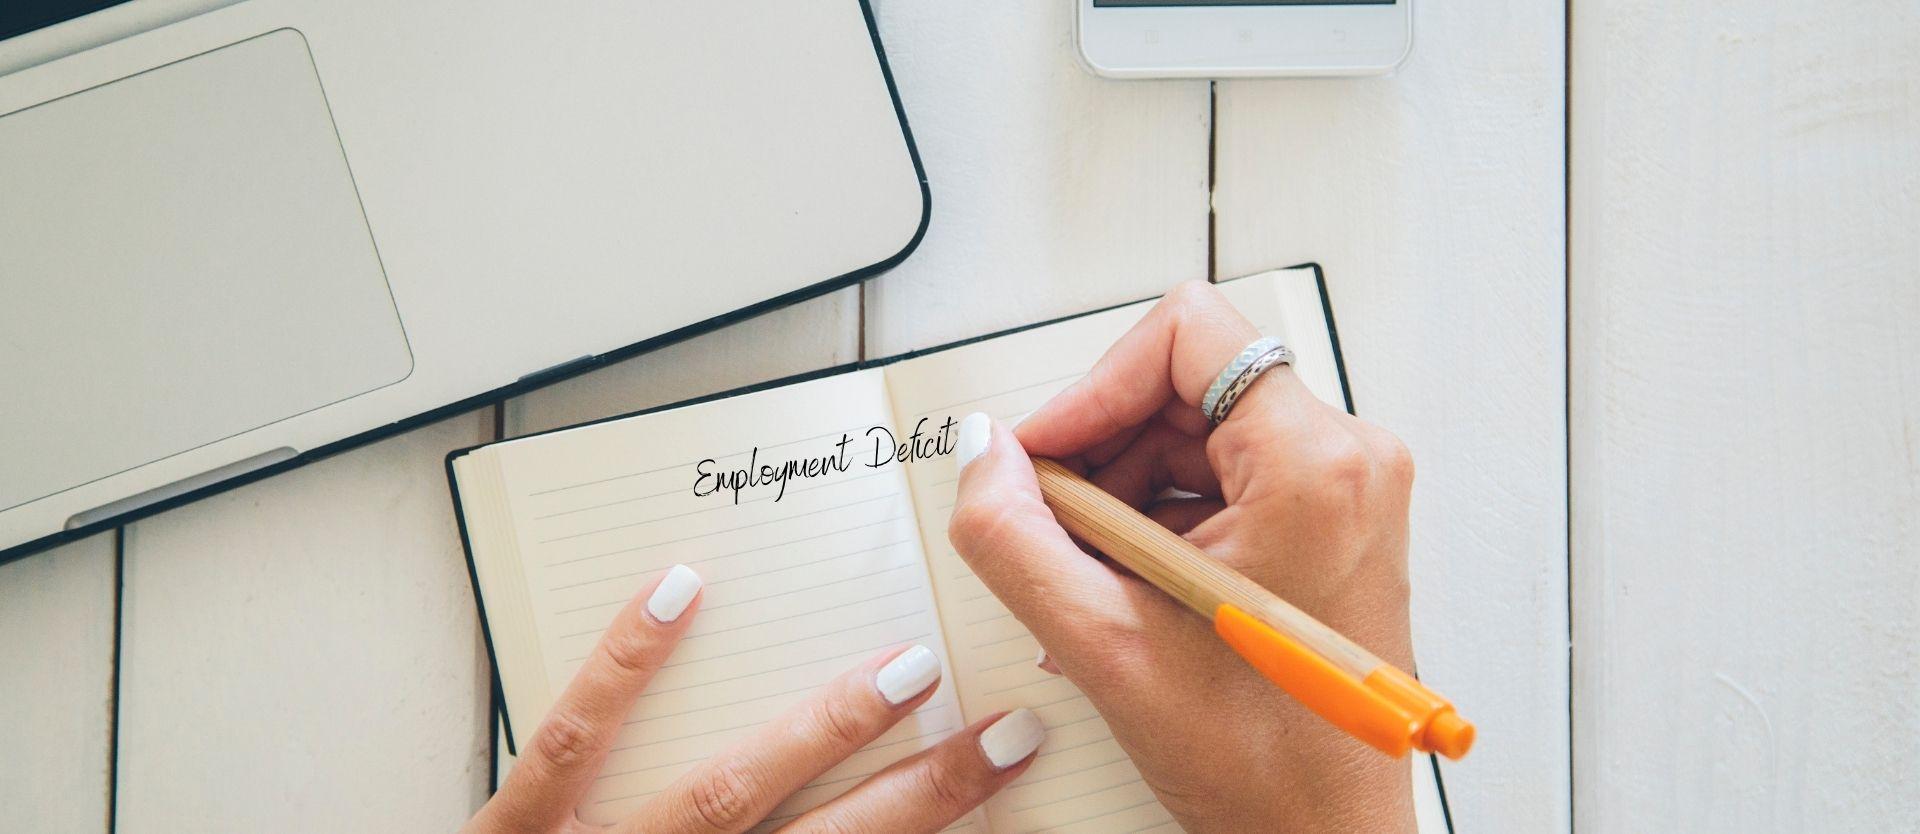 Employment Deficit